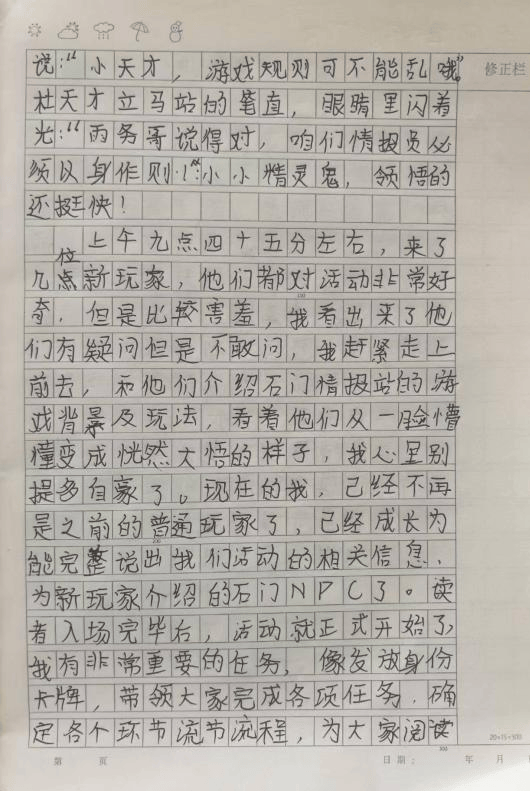 修正栏
说：“小天才，游戏规则可不能乱哦。”
杜天才立马站的笔直，眼睛里闪着
光：“雨务哥说得对，咱们情报员必
须以身作则！”小小精灵鬼，领悟的
还挺快！
上午九点四十五分左右，来了
几位新玩家，他们都对活动非常好
奇，但是比较害羞，我看出来了他
们有疑问但是不敢问，我赶紧走上
前去，和他们介绍石门情报站的游
戏背景及玩法，看着他们从一脸懵
懂变成恍然大悟的样子，我心里别
提多自豪了。现在的我，已经不再
是之前的普通玩家了，已经成长为
能完整说出我们活动的相关信息，
为新玩家介绍的石门NPC了。读
者入场完毕后，活动就正式开始了，
我有非常重要的任务，像发放身份
卡牌，带领大家完成各项任务，确
定各个环节流节流程，为大家阅读
20×15=300
第 页 日期： 年 月